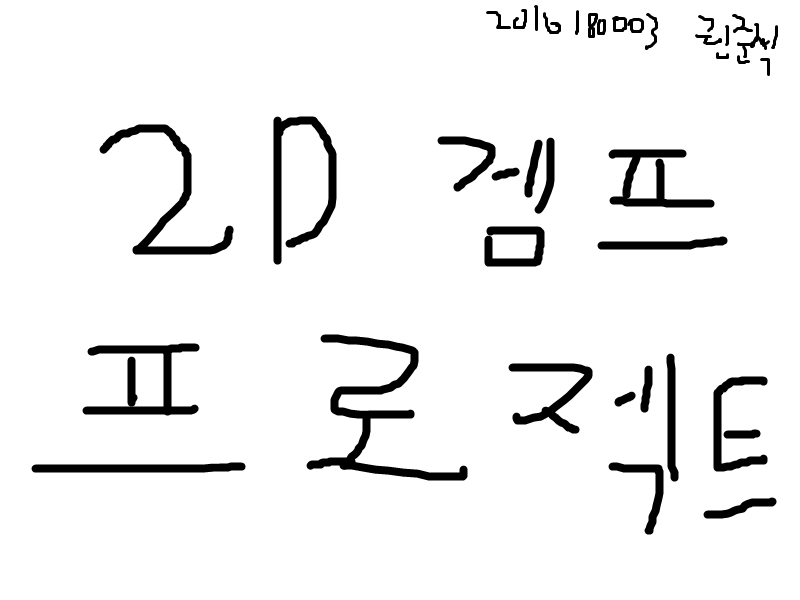 2016180003 권준혁
2D 겜프
프로젝트